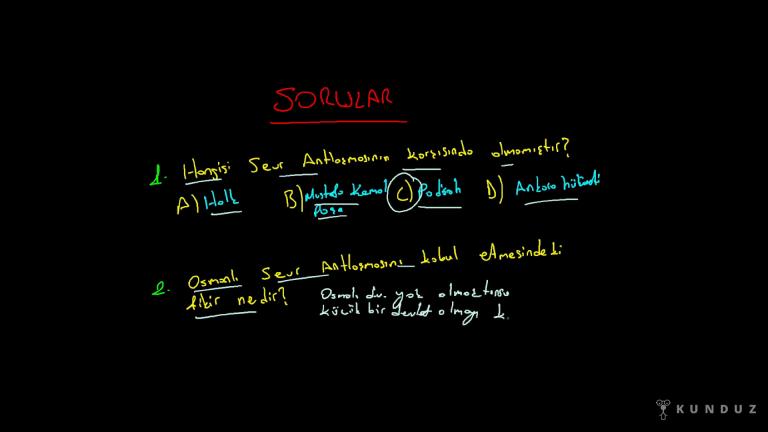 SORULAR
1. Hangisi Sevr Antlaşmasının karşısında olmamıştır?
A) Halk B) Mustafa Kemal C) Padişah D) Ankara hükümeti
Paşa
2. Osmanlı Sevr Antlaşmasını kabul etmesindeki
fikir nedir? Osmalı dv. yok olmaktansa
küçük bir devlet olmayı k.
KUNDUZ